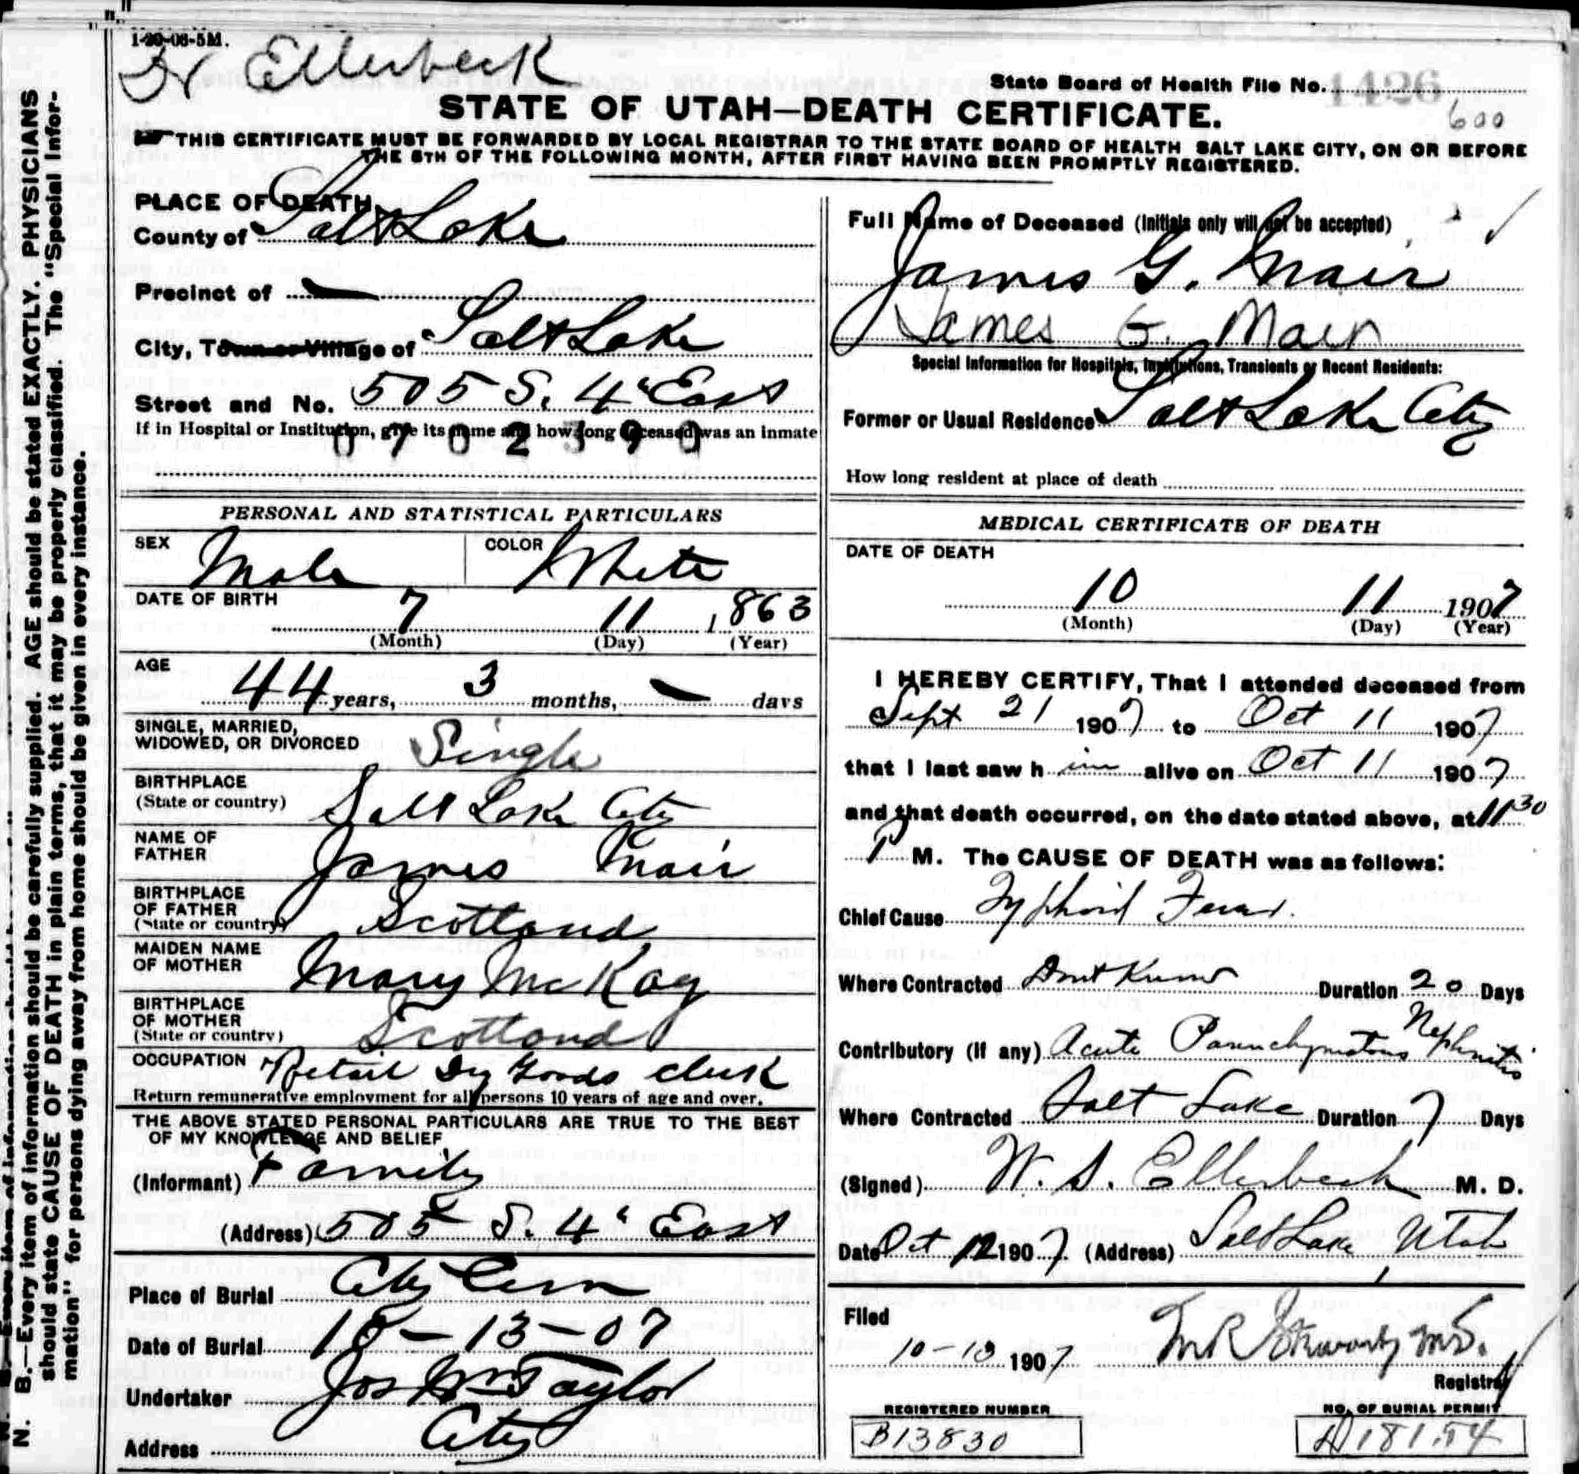 1-20-06-5M.
Dr Ellerbeck
State Board of Health File No. 1426
STATE OF UTAH—DEATH CERTIFICATE.
600
THIS CERTIFICATE MUST BE FORWARDED BY LOCAL REGISTRAR TO THE STATE BOARD OF HEALTH SALT LAKE CITY, ON OR BEFORE
THE 5TH OF THE FOLLOWING MONTH, AFTER FIRST HAVING BEEN PROMPTLY REGISTERED.
N. B.—Every item of information should be carefully supplied. AGE should be stated EXACTLY. PHYSICIANS
should state CAUSE OF DEATH in plain terms, that it may be properly classified. The "Special Infor-
mation" for persons dying away from home should be given in every instance.
PLACE OF DEATH
County of Salt Lake
Precinct of —
City, Town or Village of Salt Lake
Street and No. 505 S. 4" East
If in Hospital or Institution, give its name and how long deceased was an inmate
0702390
PERSONAL AND STATISTICAL PARTICULARS
SEX Male COLOR White
DATE OF BIRTH 7 11 1863
(Month) (Day) (Year)
AGE 44 years, 3 months, — days
SINGLE, MARRIED,
WIDOWED, OR DIVORCED Single
BIRTHPLACE
(State or country) Salt Lake City
NAME OF
FATHER James Mair
BIRTHPLACE
OF FATHER
(State or country) Scotland
MAIDEN NAME
OF MOTHER Mary McKay
BIRTHPLACE
OF MOTHER
(State or country) Scotland
OCCUPATION Retail Dry Goods clerk
Return remunerative employment for all persons 10 years of age and over.
THE ABOVE STATED PERSONAL PARTICULARS ARE TRUE TO THE BEST
OF MY KNOWLEDGE AND BELIEF
(Informant) Family
(Address) 505 S. 4" East
Place of Burial City Cem
Date of Burial 10-13-07
Undertaker Jos Wm Taylor
Address City
Full Name of Deceased (Initials only will not be accepted)
James G. Mair
James G. Mair
Special Information for Hospitals, Institutions, Transients or Recent Residents:
Former or Usual Residence Salt Lake City
How long resident at place of death
MEDICAL CERTIFICATE OF DEATH
DATE OF DEATH
10 11 1907
(Month) (Day) (Year)
I HEREBY CERTIFY, That I attended deceased from
Sept 21 1907 to Oct 11 1907
that I last saw him alive on Oct 11 1907
and that death occurred, on the date stated above, at 11 30
P M. The CAUSE OF DEATH was as follows:
Chief Cause Typhoid Fever.
Where Contracted Dont Know Duration 20 Days
Contributory (if any) Acute Parenchymatous Nephritis
Where Contracted Salt Lake Duration 7 Days
(Signed) W. S. Ellerbeck M. D.
Date Oct 12 1907. (Address) Salt Lake, Utah
Filed
10-13 1907 M R Stewart, M.D.
Registrar
REGISTERED NUMBER
B13830
NO. OF BURIAL PERMIT
D18154